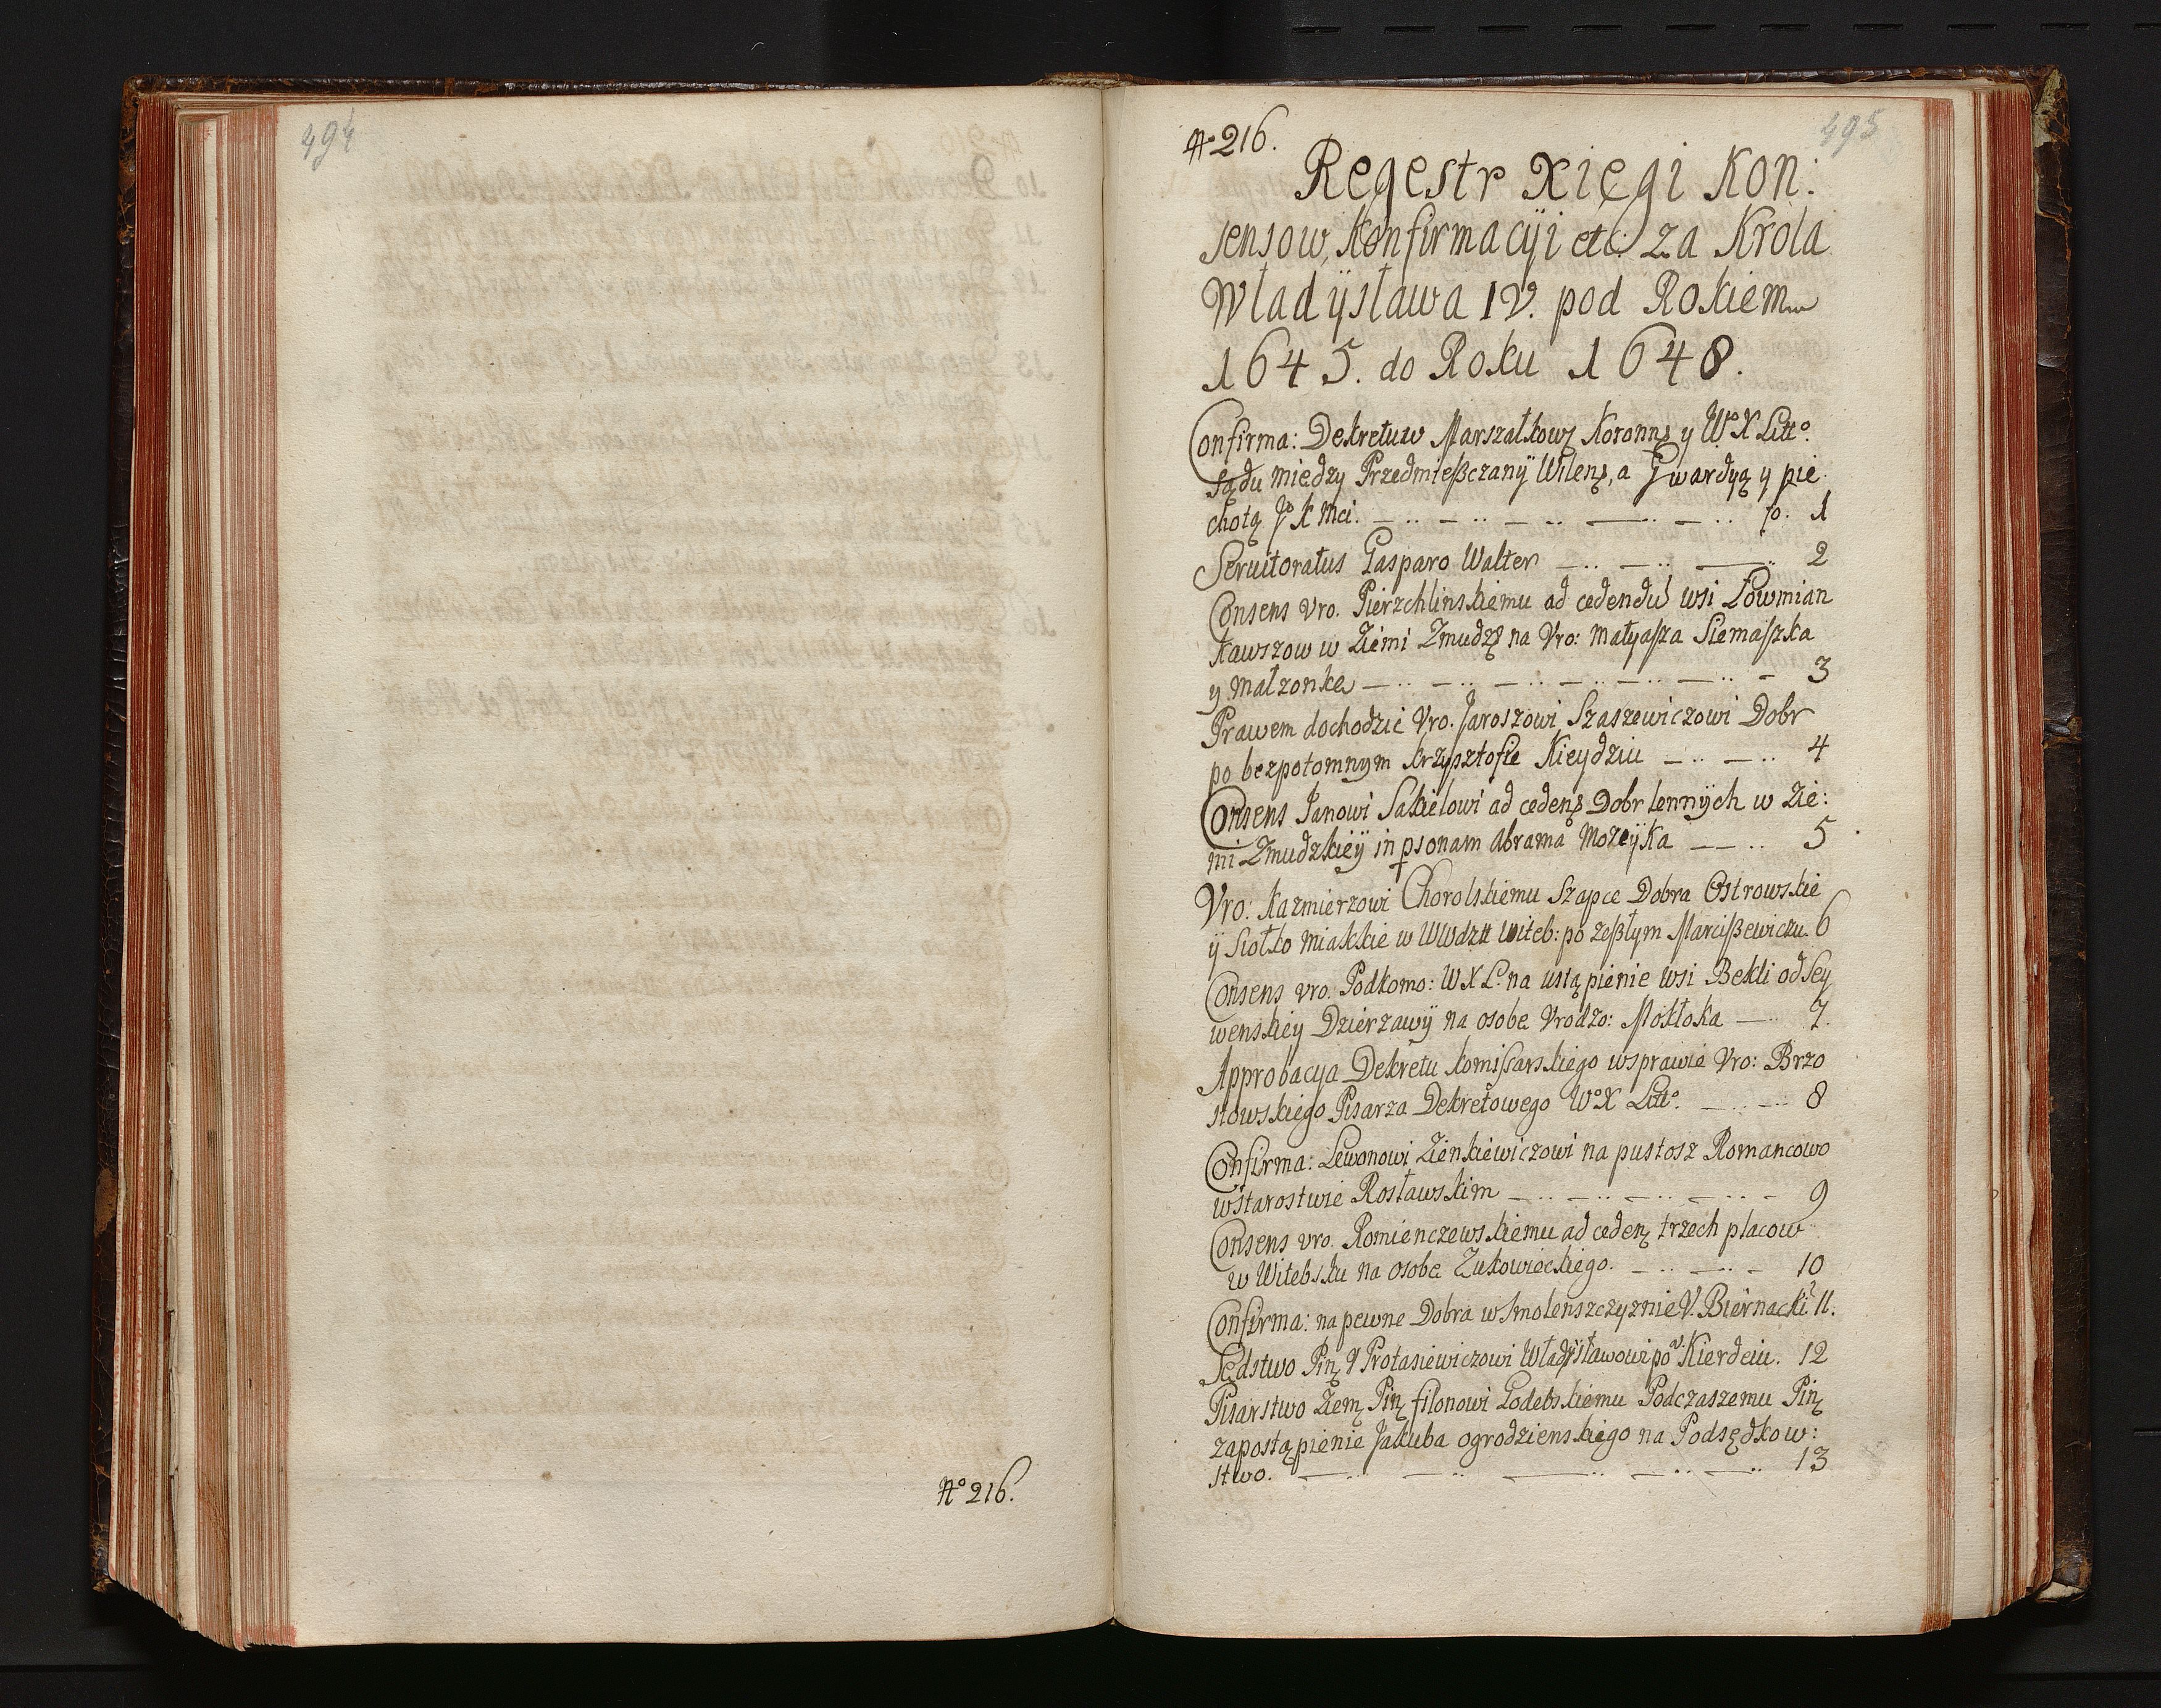 494
Nº 216.
495
Nº 216.
Regestr Xięgi Kon:
sensow, Konfirmacÿi etc: za Krola
Władÿsława IV. pod Rokiem
1645. do Roku 1648.
Confirma: Dekretuw Marszałkowz Koronnz y Wº X Littº.
Sądu między Przedmießczanÿ Wilenz, a Gwardyą y pie
chotą Jº K Mci. — .. — .. — .. — .. — .. fo. 1
Seruitoratus Gasparo Walter — .. — .. — .. 2
Consens Vro. Pierzchlinskiemu ad cedendu wsi Łowmian
Kawszow w Ziemi Zmudzz na Vro: Matyasza Siemaszka
y Małzonkę — .. — .. — .. — .. — .. — .. — 3
Prawem dochodzić Vro. Jaroszowi Szaszewiczowi Dobr
po bezpotomnym Krzysztofie Kieydziu — .. — .. 4
Consens Janowi Sakielowi ad cedenz Dobr lennÿch w Zie:
mi Zmudzkieÿ in psonam Abrama Mozeÿka — — .. 5
Vro: Kazmierzowi Chorolskiemu Szapce Dobra Ostrowskie
ÿ Siołko Miakkie w WWdztt Witeb: po zeßłym Marcißewiczu. 6
Consens vro. Podkomo: W X L. na ustąpienie wsi Bekli od Sey
wenskiey Dzierzawÿ na osobe Vrodzo: Mokłoka — 7.
Approbacya Dekretu komissarskiego wsprawie Vro: Brzo
stowskiego Pisarza Dekretowego Wº X Littº. — .. — .. 8
Confirma: Lewonowi Zienkiewiczowi na pustosz Romancowo
wstarostwie Rosławskim — .. — .. — .. — .. — 9
Consens vro. Romienczewskiemu ad cedenz trzech placow
w Witebsku na osobe Zukowieckiego. — .. — .. — 10
Confirma: na pewne Dobra w Smolenszczyznie V. Biernacki 11.
Sędstwo Pinz V Protasiewiczowi Władÿsławowi po V Kierdeiu. 12
Pisarstwo Ziemz Pinz filonowi Godebskiemu Podczaszemu Pinz
zapostąpienie Jakuba ogrodzienskiego na Podsędkow:
stwo. — .. — .. — .. — .. — .. 13